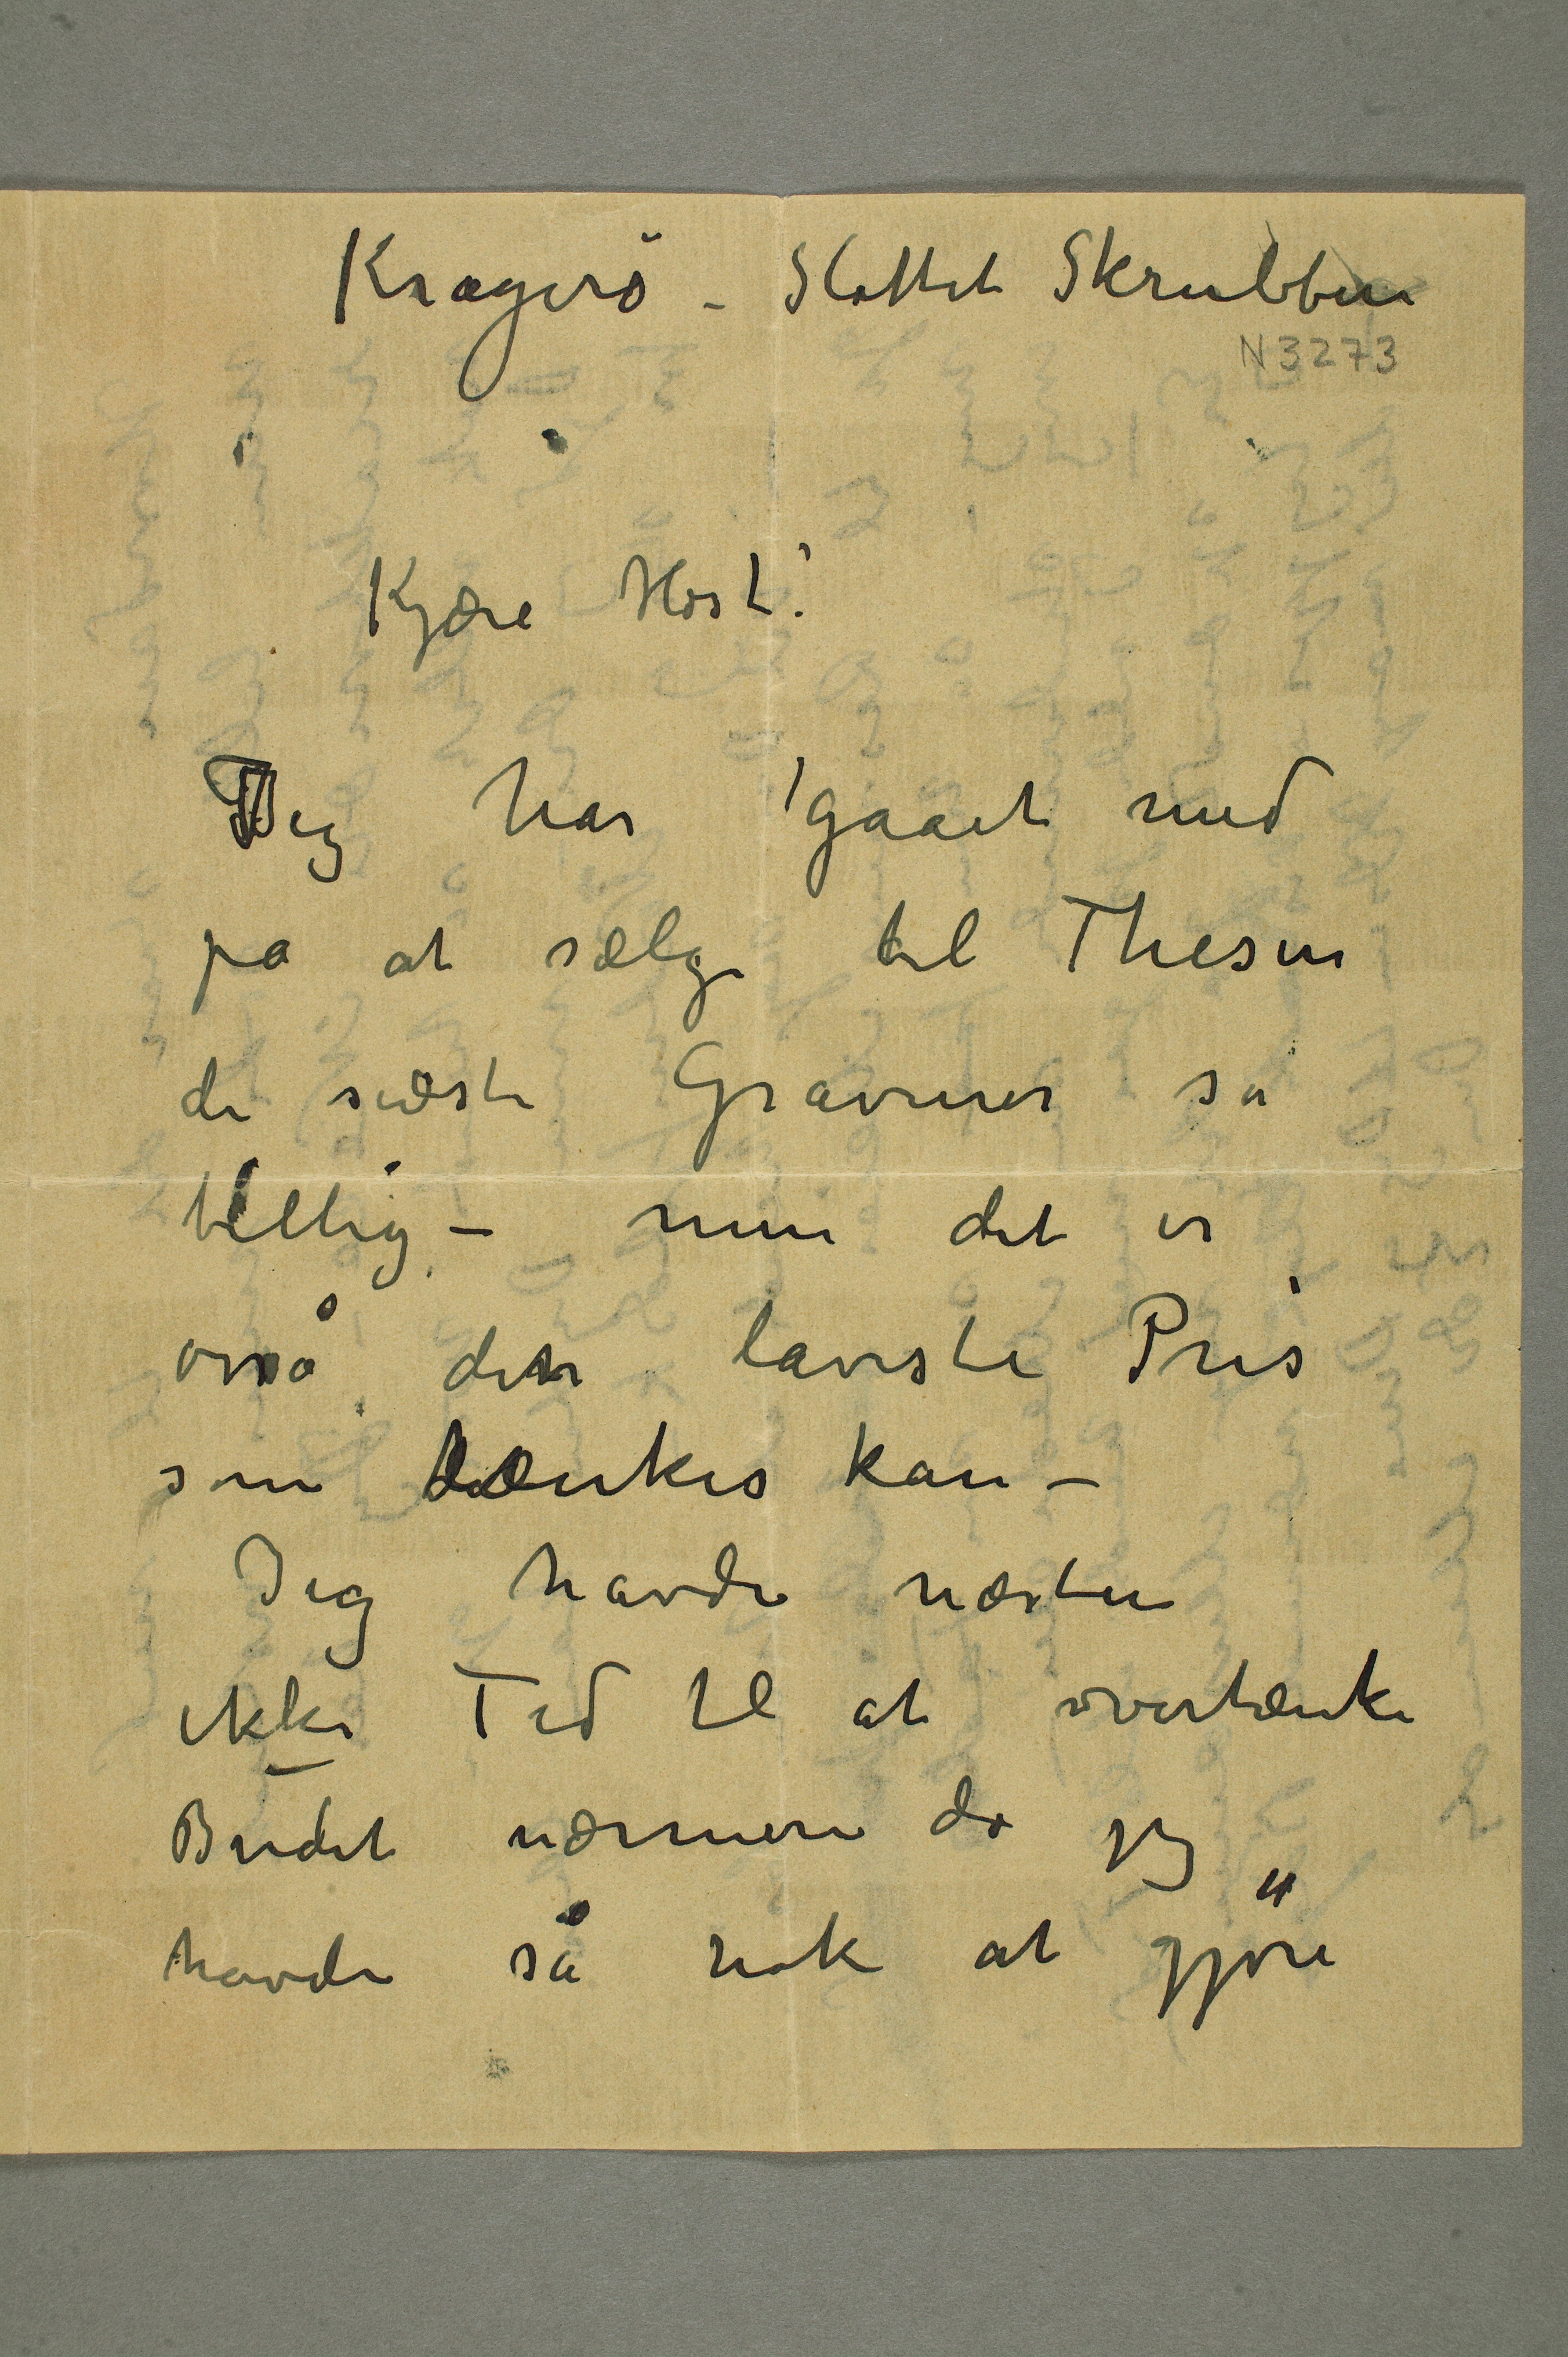 Kragerö – Slottet Skrubben
N3273
Kjære Höst!
Jeg har gaaet med
på at sælge til Thesen
de sidste Gravurer så
billig – men det er
også den laveste Pris
som tænkes kan –
Jeg havde næsten
ikke Tid til at overtænke
Budet nærmere da jeg
havde så nok at gjöre